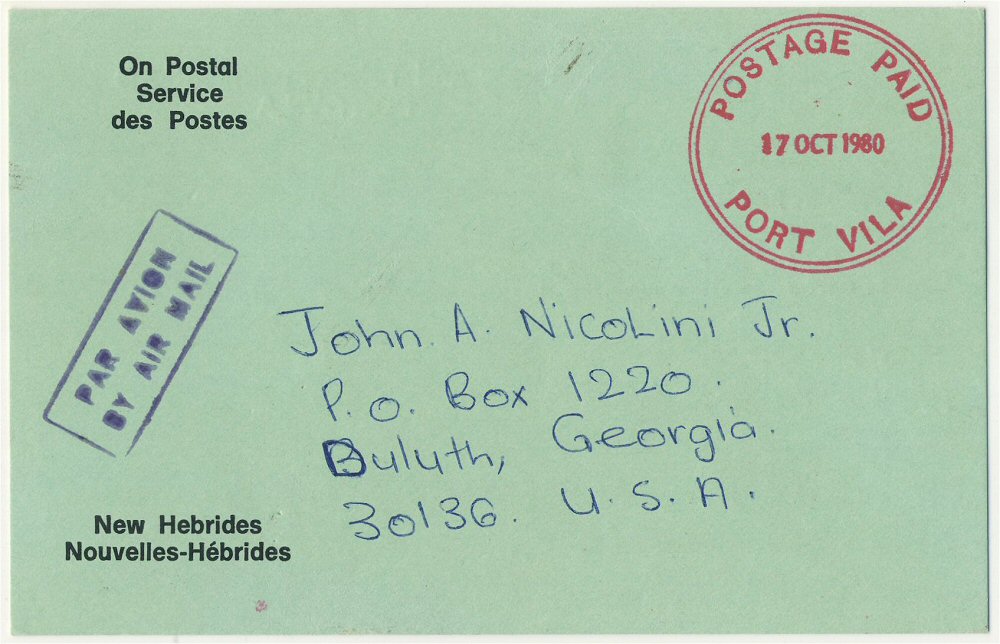 On Postal
Service
des Postes
POSTAGE PAID
17 OCT 1980
PORT VILA
PAR AVION
BY AIR MAIL
John. A. Nicolini Jr.
P.O. Box 1220.
Buluth, Georgia.
30136. U.S.A.
New Hebrides
Nouvelles-Hébrides